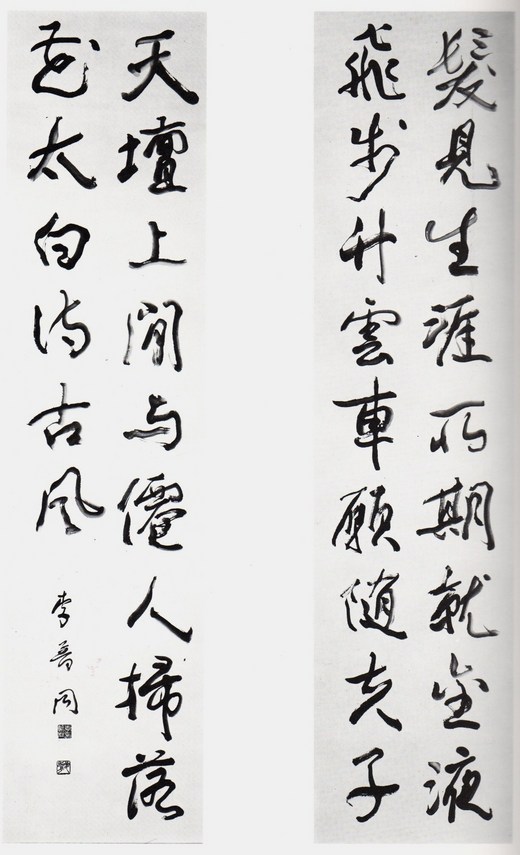 髮見生涯所期就金液
飛步升雲車願隨夫子
天壇上閒与僊人掃落
花太白詩古風
李普同